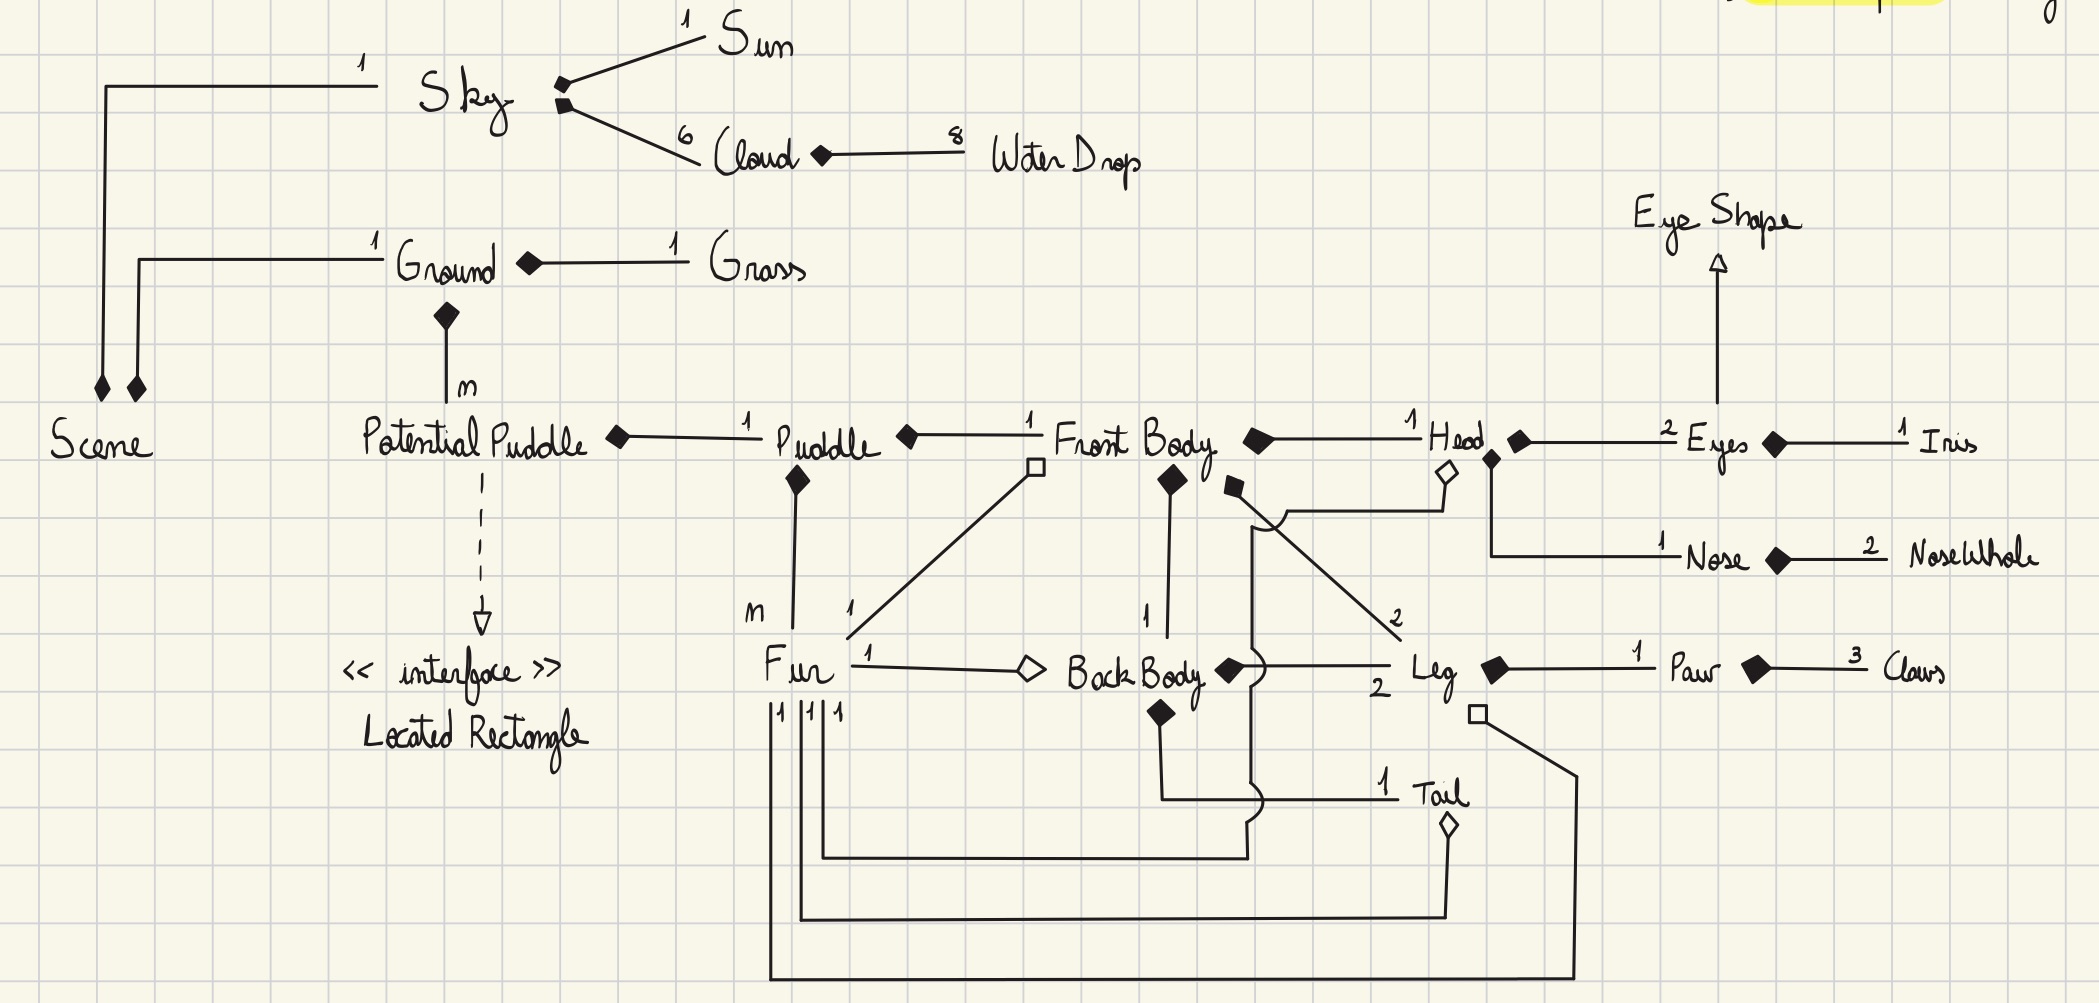 1 Sun
1 Sky
6 Cloud 8 Water Drop
Eye Shape
1 Ground 1 Grass
n
Scene Potential Puddle 1 Puddle 1 Front Body 1 Head 2 Eyes 1 Iris
1 Nose 2 NoseWhole
n 1 1 2
<< interface >> Fur 1 Back Body 2 Leg 1 Paw 3 Claws
Located Rectangle 1 1 1
1 Tail